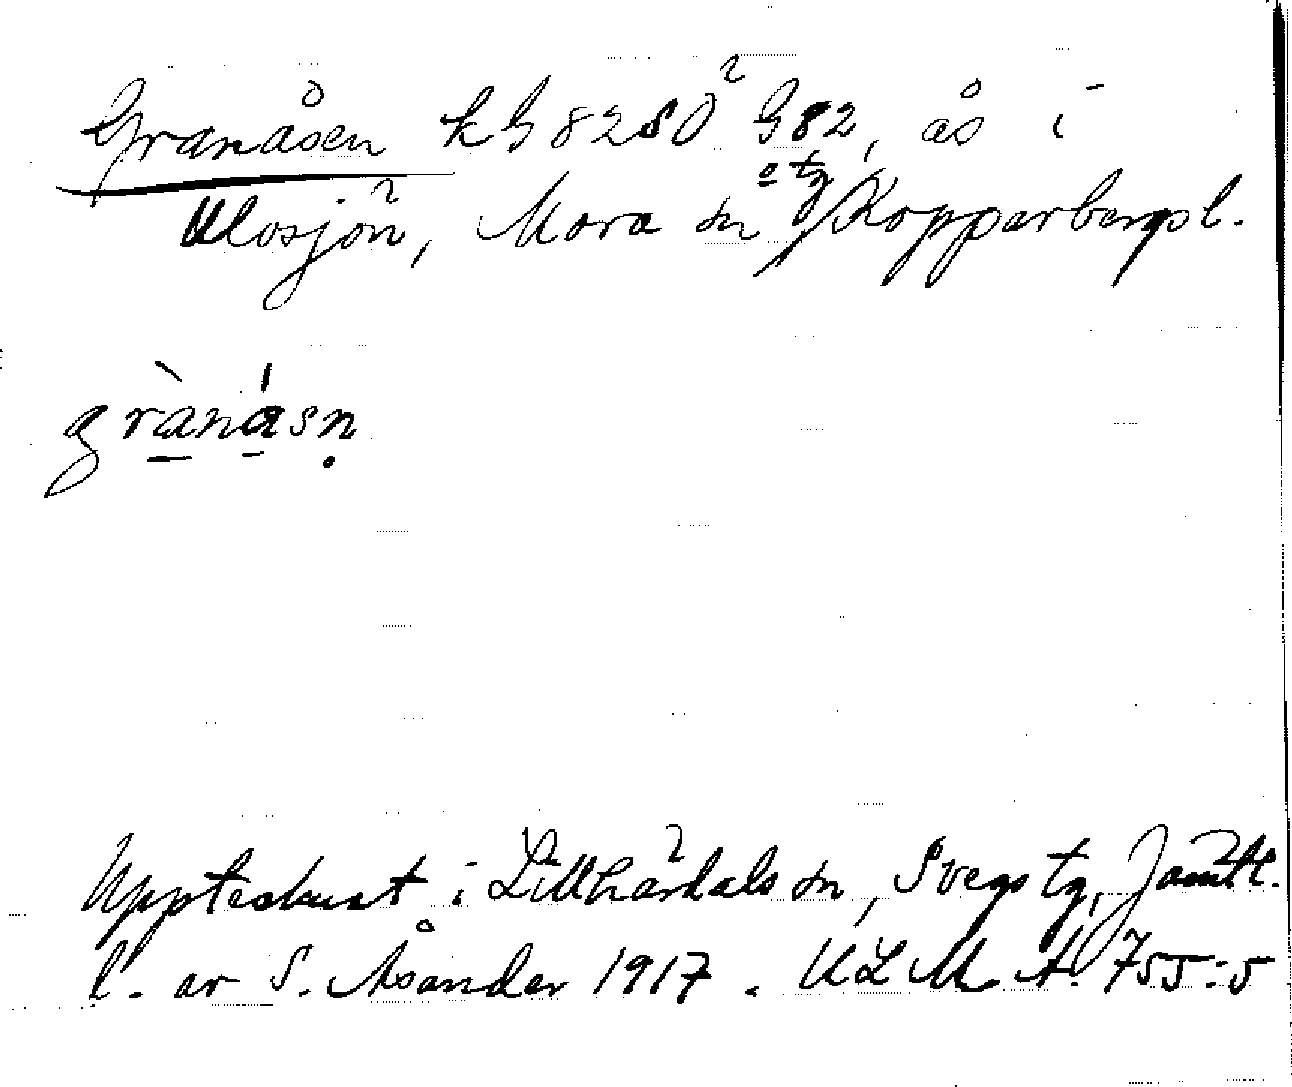 Granåsen k G 82 SÖ G 82, ås i
Ulosjön, Mora sn o tg Kopparbergs l.
grànásn
Upptecknat i Lillhärdals sn, Svegs tg, Jämtl.
l. av S. Åsander 1917. ULMA. 755:5